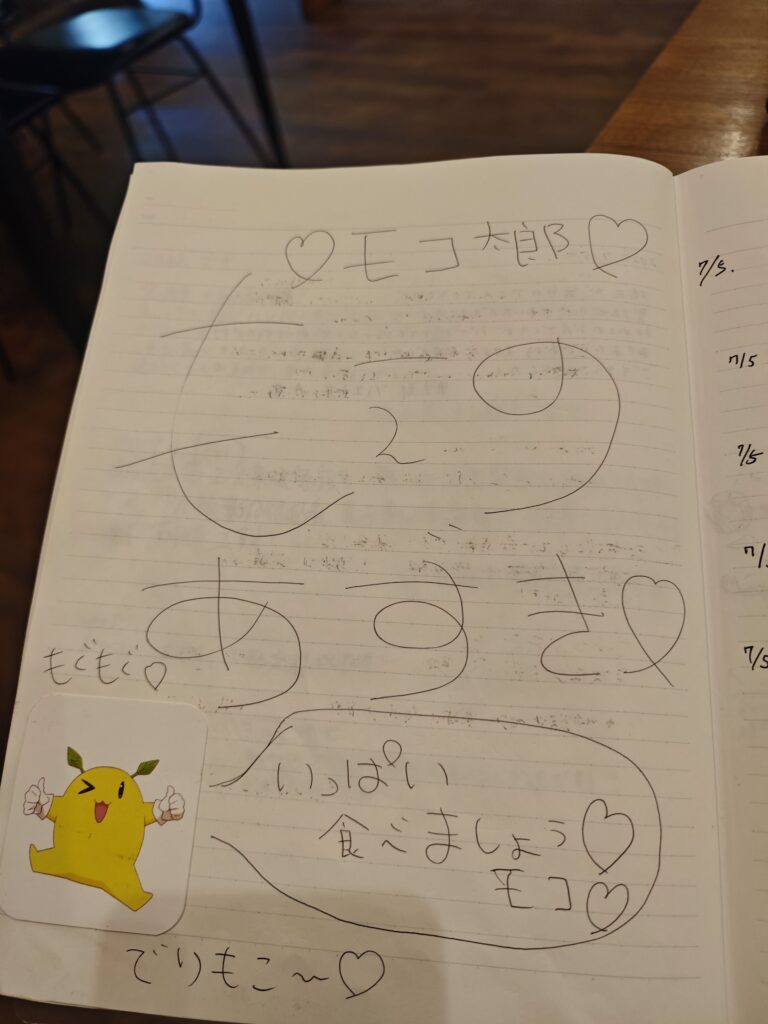 ♡モコ太郎♡
もえの
あずき♡
もぐもぐ♡
いっぱい
食べましょう♡
モコ♡
でりもこ〜♡
7/5.
7/5
7/5
7/5